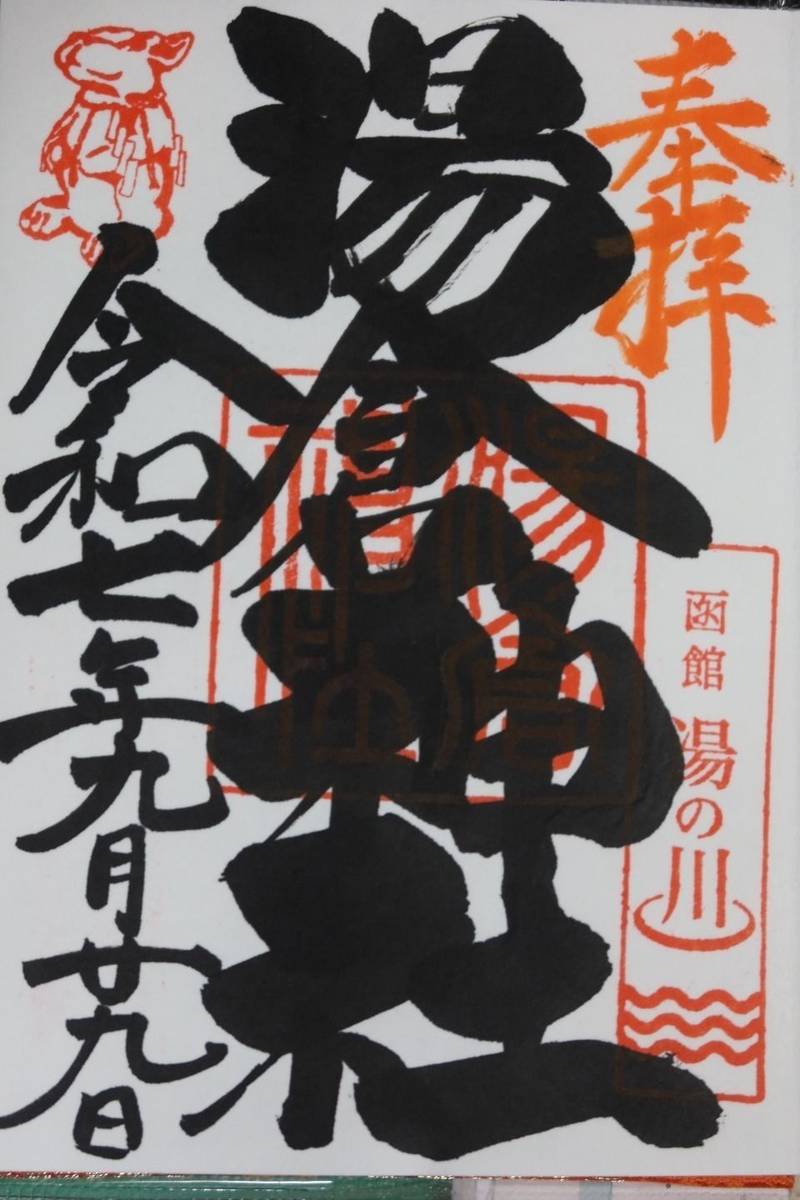 奉拝
函館 湯の川
湯倉神社
湯倉神社
令和七年九月廿九日